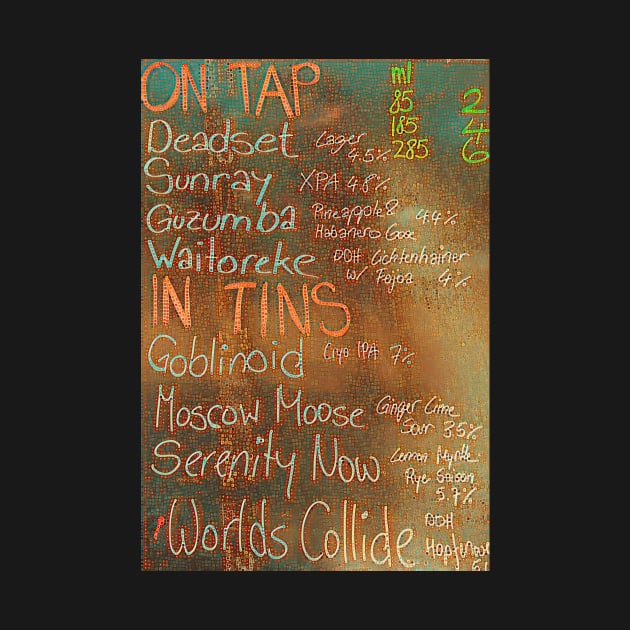 ON TAP
ml
85 2
185 4
285 6
Deadset Lager 4.5%
Sunray XPA 4.8%
Guzumba Pineapple & 4.4%
Habanero Gose
Waitoreke DDH Lichtenhainer
w/ Fejoa 4%
IN TINS
Goblinoid Cryo IPA 7%
Moscow Moose Ginger Lime
Sour 3.5%
Serenity Now Lemon Myrtle
Rye Saison
5.7%
Worlds Collide DDH